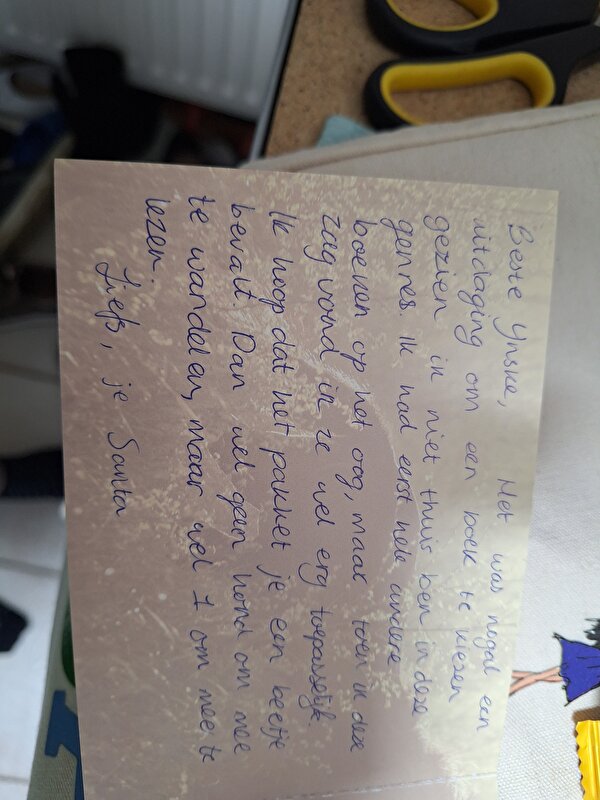 Beste Ynske, Het was nogal een
uitdaging om een boek te kiesen
gezien ik niet thuis ben in deze
genres. Ik had eerst hele andere
boeken op het oog, maar toen ik deze
zag vond ik ze wel erg toepasselijk
Ik hoop dat het pakket je een beetje
bevalt. Dan wel geen hond om mee
te wandelen, maar wel 1 om mee te
lezen.
Liefs, je Santa